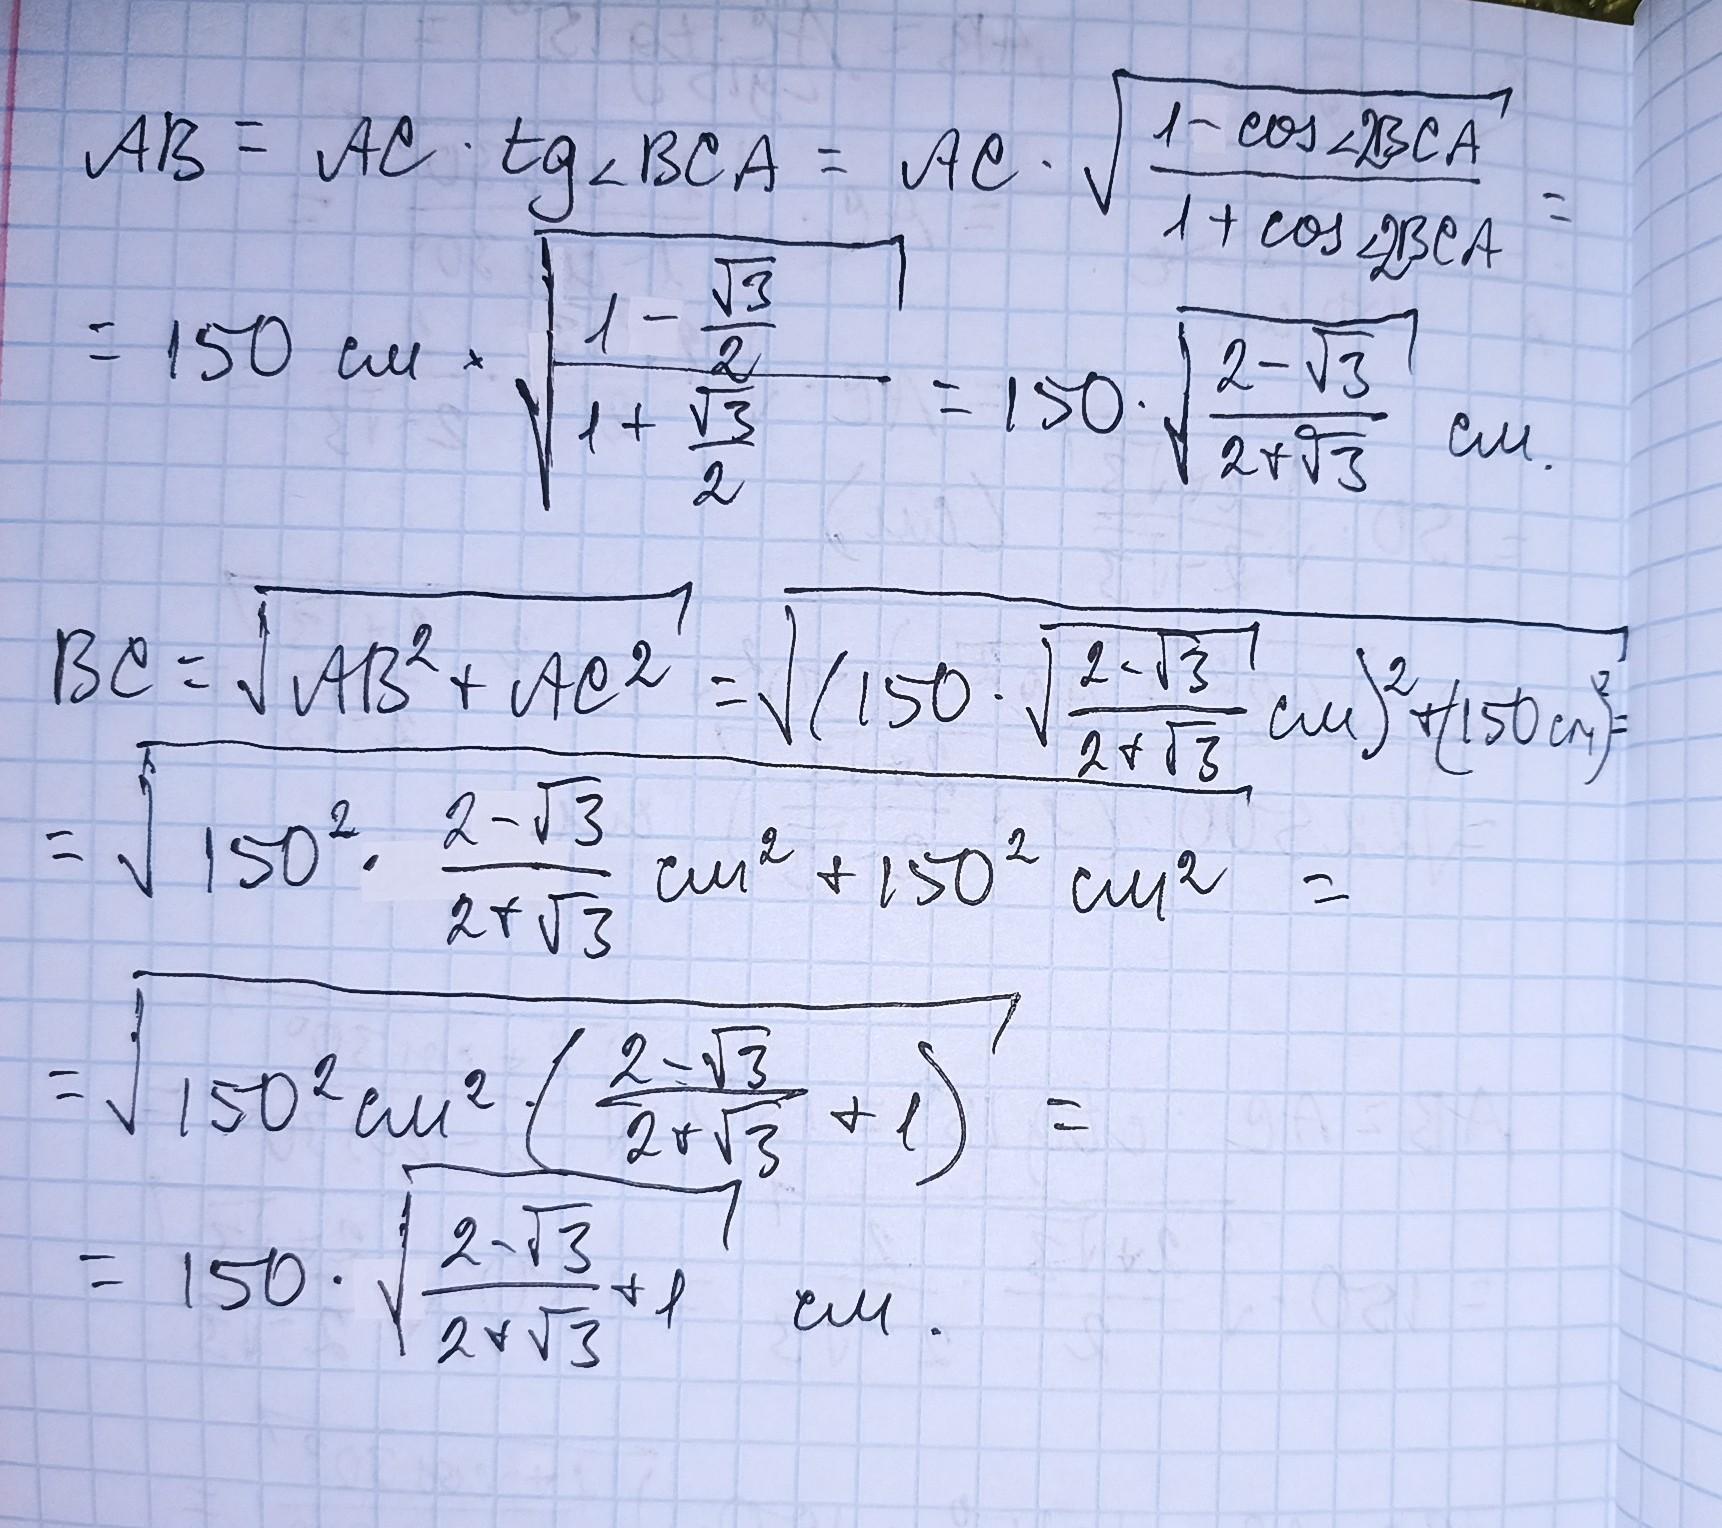 AB = AC · tg∠BCA = AC · √((1-cos∠2BCA)/(1+cos∠2BCA)) =
= 150 см × √((1-√3/2)/(1+√3/2)) = 150 · √((2-√3)/(2+√3)) см.
BC = √(AB² + AC²) = √((150 · √((2-√3)/(2+√3)) см)² + (150 см)²) =
= √(150² · (2-√3)/(2+√3) см² + 150² см²) =
= √(150² см² · ((2-√3)/(2+√3) + 1)) =
= 150 · √((2-√3)/(2+√3) + 1) см.